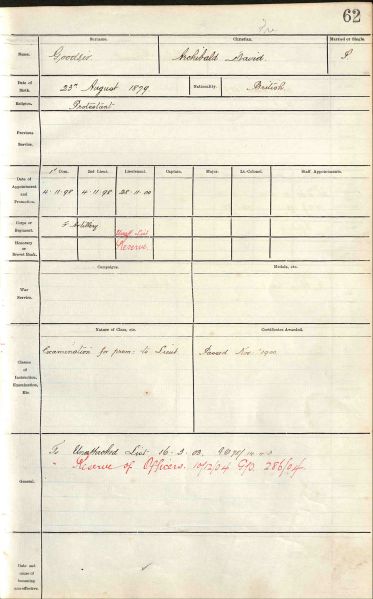 62
Surname. Christian. Married or Single.
Name. Archibald David. S
Date of Birth. 23rd August 1879 Nationality. British
Religion. Protestant
Previous Service.
1st Com. 2nd Lieut. Lieutenant. Captain. Major. Lt.-Colonel. Staff Appointments.
Date of Appointment and Promotion. 4.11.98 4.11.98 28.11.00
Corps or Regiment. F. Artillery Unatt. List
Honorary or Brevet Rank. Reserve.
Campaigns. Medals, etc.
War Service.
Nature of Class, etc. Certificates Awarded.
Classes of Instruction, Examination, Etc. Examination for prom: to Lieut. Passed Nov. 1900
General. To Unattached List 16.3.03.
" Reserve of Officers. 10/12/04 G.O. 286/04.
Date and cause of becoming non-effective.